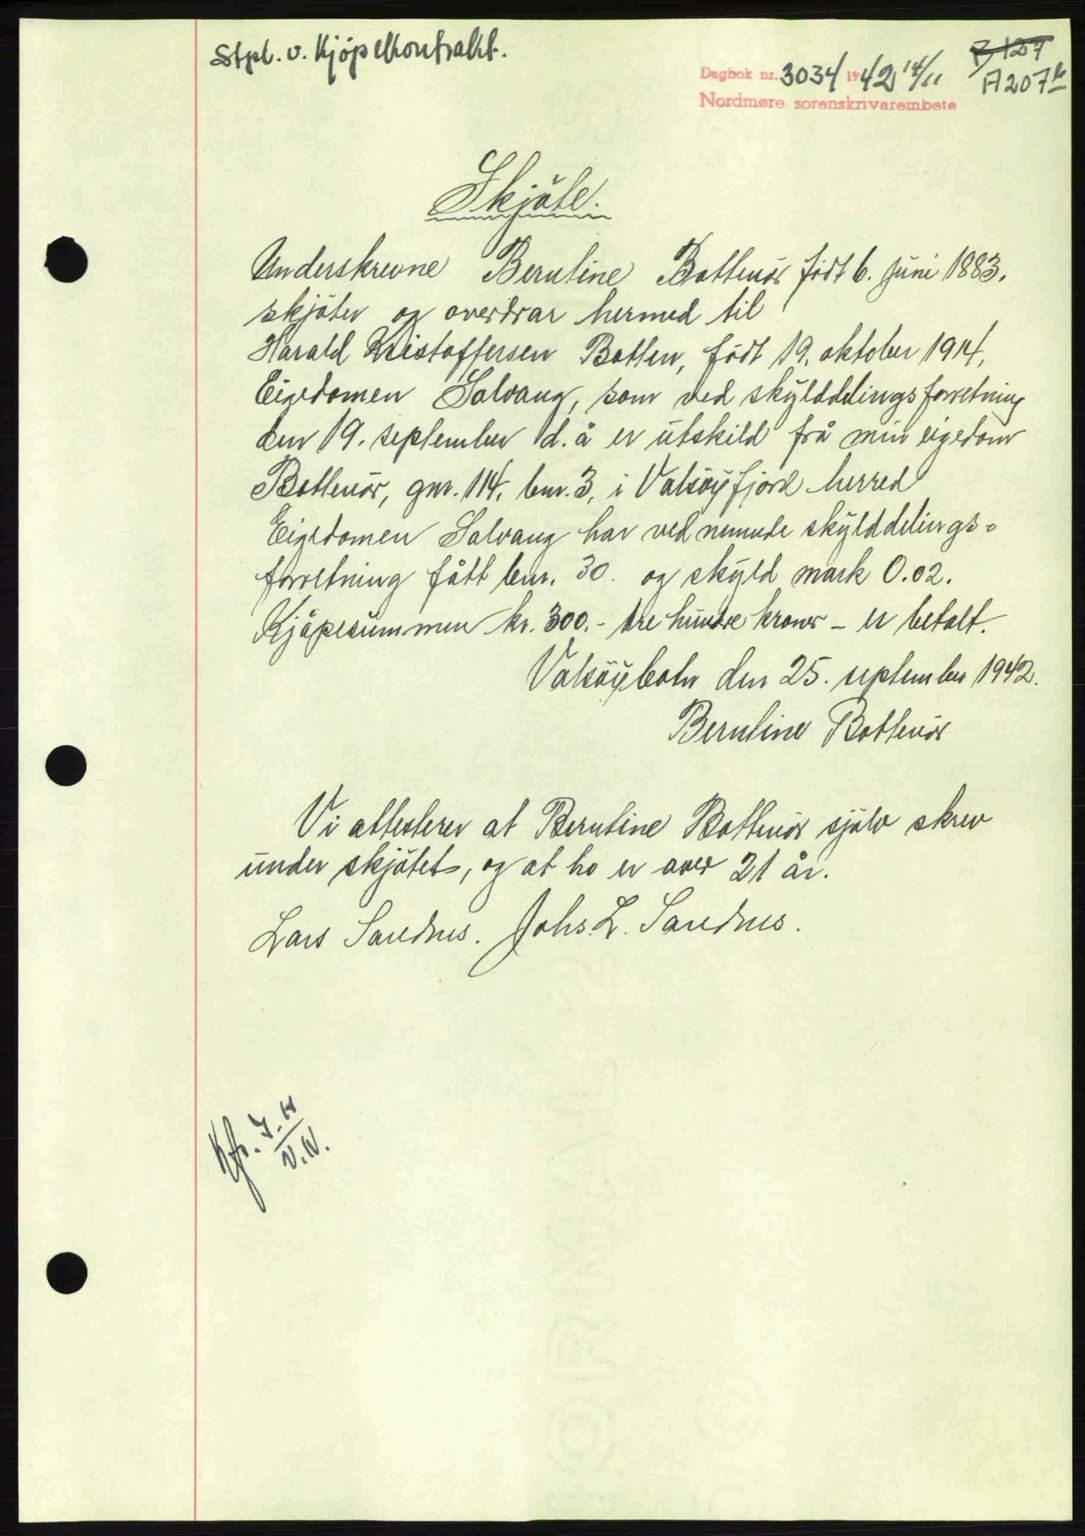 Stpl. v. Kjøpekontrakt.
B 127
Dagbok nr. 3034 1942 14/11
A207
Nordmøre sorenskrivarembete
Skjöte.
Underskrevne Berntine Bottenör født 6. juni 1883,
skjöter og overdrar hermed til
Harald Kristoffersen Botten, födt 19. oktober 1914,
Eigedomen Solvang, som ved skylddelingsforretning
den 19. september d. å er utskild frå min eigedom
Bottenör, gnr. 114, bnr. 3, i Valsöyfjord herred
Eigedomen Solvang har ved nemnde skylddelings=
forretning fått bnr. 30. og skyld mark 0.02.
Kjöpesummen kr. 300.- tre hundre kroner - er betalt.
Valsöybotn den 25. september 1942.
Berntine Bottenör
Vi attesterer at Berntine Bottenör sjölv skrev
under skjötet, og at ho er over 21 år.
Lars Sandnes. Johs. L. Sandnes.
Kfr. J. H
N.N.